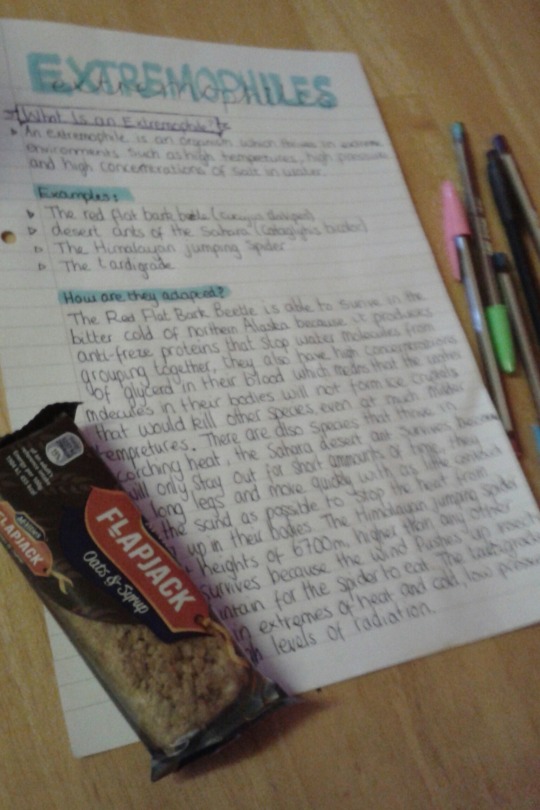 EXTREMOPHILES
extremophiles
What is an Extremophile?
An extremophile is an organism which thrives in extreme
environments such as high tempretures, high pressure
and high concentrations of salt in water.
Examples:
The red flat bark beetle
desert ants of the Sahara
The Himalayan jumping spider
The Tardigrade
How are they adapted?
The Red Flat Bark Beetle is able to survive in the
bitter cold of northern Alaska because it produces
anti-freze proteins that stop water molecules from
grouping together, they also have high concentrations
of glycerol in their blood which means that the water
molecules in their bodies will not form ice crystals
that would kill other species, even at much milder
tempretures. There are also species that thrive in
corching heat, the Sahara desert ant survives because
will only stay out for short amounts of time, they
long legs and move quickly with as little conduct
the sand as possible to stop the heat from
up in their bodies. The Himalayan jumping spider
heights of 6700m, higher than any other
urvives because the wind pushes up insects
ntain for the spider to eat. The tardigrade
in extremes of heat and cold, low pressure
h levels of radiation.
FLAPJACK
Oats & Syrup
FLAPJACK